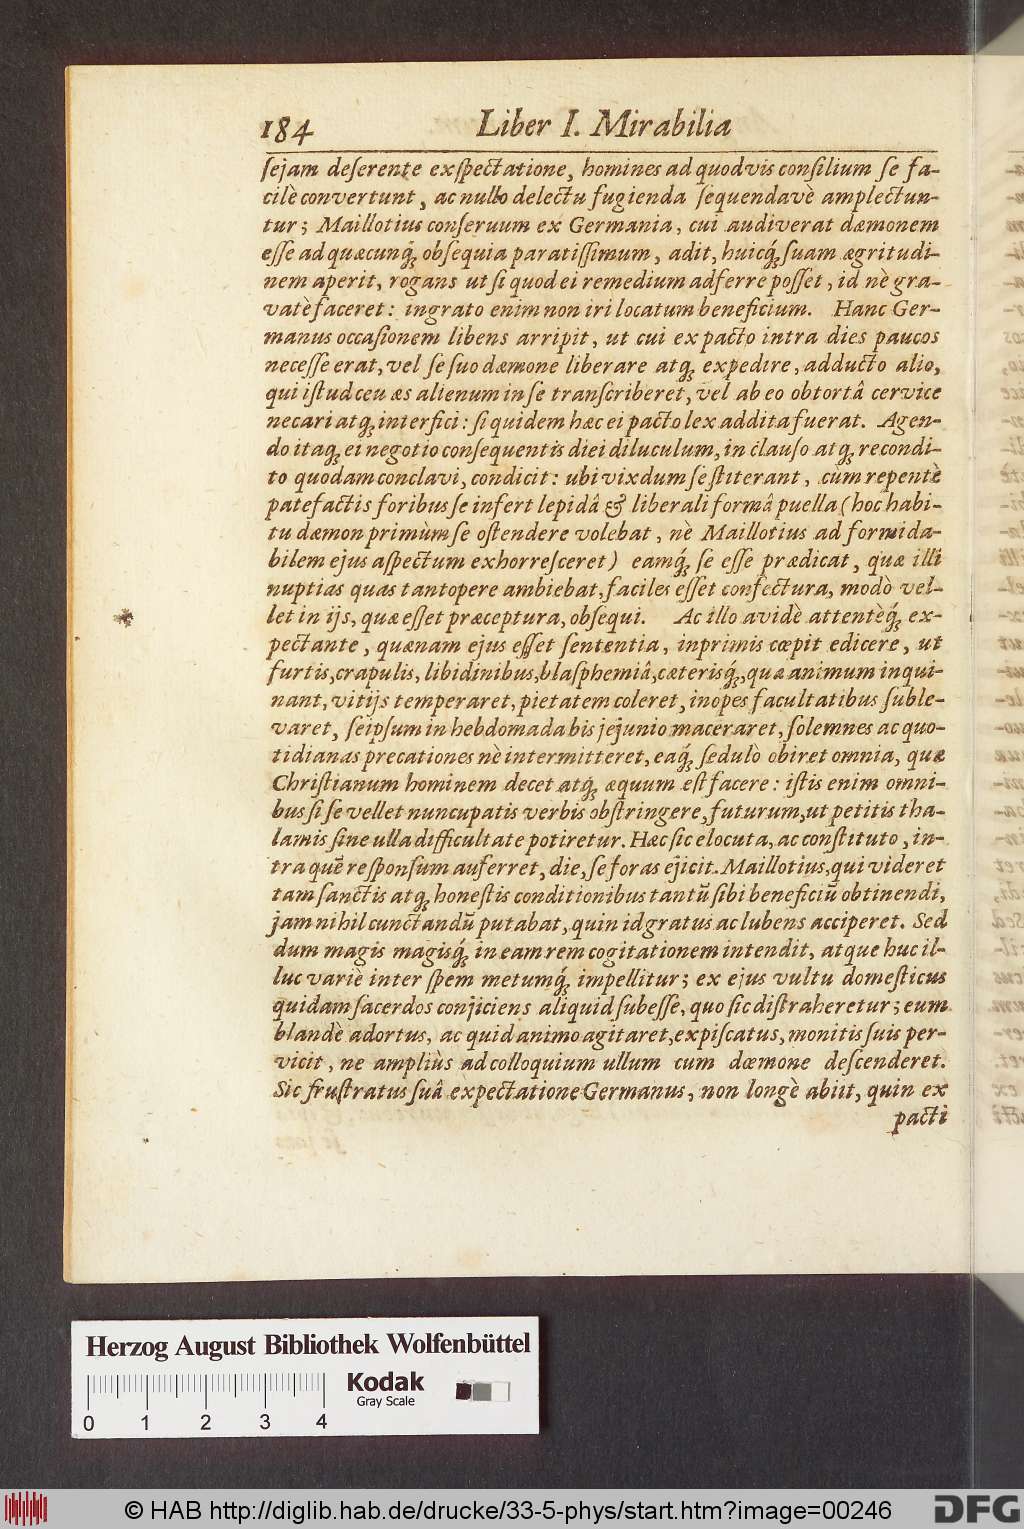 184 Liber I. Mirabilia
ſejam deſerente exſpectatione, homines ad quodvis conſilium ſe fa-
cilè convertunt, ac nullo delectu fugienda ſequendavè amplectun-
tur; Maillotius conſeruum ex Germania, cui audiverat dæmonem
eſſe ad quæcunq́; obſequia paratiſſimum, adit, huicq́; ſuam ægritudi-
nem aperit, rogans ut ſi quod ei remedium adferre poſſet, id nè gra-
vatè faceret: ingrato enim non iri locatum beneficium. Hanc Ger-
manus occaſionem libens arripit, ut cui ex pacto intra dies paucos
neceſſe erat, vel ſe ſuo dæmone liberare atq; expedire, adducto alio,
qui iſtud ceu æs alienum in ſe tranſcriberet, vel ab eo obtortâ cervice
necari atq; interfici: ſiquidem hæc ei pacto lex addita fuerat. Agen-
do itaq; ei negotio conſequentis diei diluculum, in clauſo atq; recondi-
to quodam conclavi, condicit: ubi vixdum ſe ſtiterant, cùm repentè
patefactis foribus ſe infert lepidâ & liberali formâ puella (hoc habi-
tu dæmon primùm ſe oſtendere volebat, nè Maillotius ad formida-
bilem ejus aſpectum exhorreſceret) eamq́; ſe eſſe prædicat, quæ illi
nuptias quas tantopere ambiebat, faciles eſſet confectura, modò vel-
let in ijs, quæ eſſet præceptura, obſequi. Ac illo avidè attentèq́; ex-
pectante, quænam ejus eſſet ſententia, inprimis cœpit edicere, ut
furtis, crapulis, libidinibus, blaſphemiâ, cæterisq́;, quæ animum inqui-
nant, vitijs temperaret, pietatem coleret, inopes facultatibus ſuble-
varet, ſeipſum in hebdomada bis jejunio maceraret, ſolemnes ac quo-
tidianas precationes nè intermitteret, eaq́; ſedulò obiret omnia, quæ
Chriſtianum hominem decet atq́; æquum eſt facere: iſtis enim omni-
bus ſi ſe vellet nuncupatis verbis obſtringere, futurum, ut petitis tha-
lamis ſine ulla difficultate potiretur. Hæc ſic elocuta, ac conſtituto, in-
tra quē reſponſum auferret, die, ſe foras ejicit. Maillotius, qui videret
tam ſanctis atq; honeſtis conditionibus tantū ſibi beneficiū obtinendi,
jam nihil cunctandū putabat, quin id gratus ac lubens acciperet. Sed
dum magis magisq́; in eam rem cogitationem intendit, atque huc il-
luc variè inter ſpem metumq́; impellitur; ex ejus vultu domeſticus
quidam ſacerdos conjiciens aliquid ſubeſſe, quo ſic diſtraheretur; eum
blandè adortus, ac quid animo agitaret, expiſcatus, monitis ſuis per-
vicit, ne ampliùs ad colloquium ullum cum dæmone deſcenderet.
Sic fruſtratus ſuâ expectatione Germanus, non longè abiit, quin ex
pacti
Herzog August Bibliothek Wolfenbüttel
0 1 2 3 4
Kodak
Gray Scale
© HAB http://diglib.hab.de/drucke/33-5-phys/start.htm?image=00246
DFG